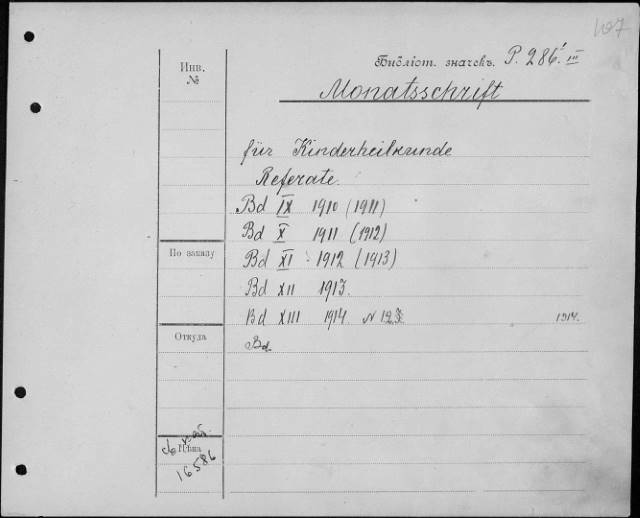 107
Инв.
№
Библіот. значекъ. P. 286.' III
Monatsschrift
für Kinderheilkunde
Referate.
Bd IX 1910 (1911)
Bd X 1911 (1912)
По заказу
Bd XI 1912 (1913)
Bd XII 1913.
Bd XIII 1914 N 1 2 3 1914.
Откуда
Bd
Цѣна
16586